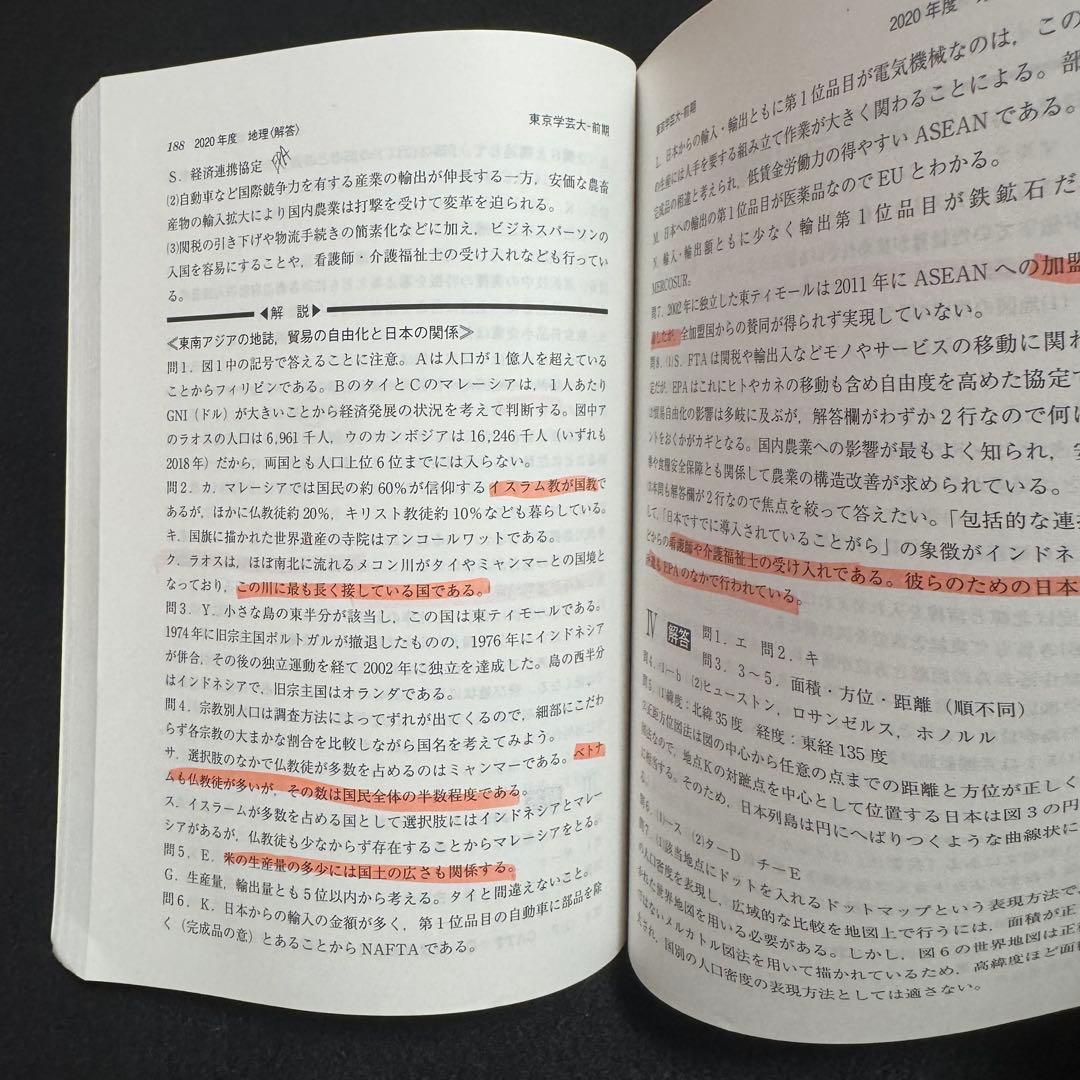 188 2020年度 地理〈解答〉
東京学芸大-前期
S．経済連携協定
⑵自動車など国際競争力を有する産業の輸出が伸長する一方，安価な農畜
産物の輸入拡大により国内農業は打撃を受けて変革を迫られる。
⑶関税の引き下げや物流手続きの簡素化などに加え，ビジネスパーソンの
入国を容易にすることや，看護師・介護福祉士の受け入れなども行ってい
る。
◀解 説▶
≪東南アジアの地誌，貿易の自由化と日本の関係≫
問1．図1中の記号で答えることに注意。Aは人口が1億人を超えている
ことからフィリピンである。BのタイとCのマレーシアは，1人あたり
GNI（ドル）が大きいことから経済発展の状況を考えて判断する。図中ア
のラオスの人口は6,961千人，ウのカンボジアは16,246千人（いずれも
2018年）だから，両国とも人口上位6位までには入らない。
問2．カ．マレーシアでは国民の約60％が信仰するイスラム教が国教で
あるが，ほかに仏教徒約20％，キリスト教徒約10％なども暮らしている。
キ．国旗に描かれた世界遺産の寺院はアンコールワットである。
ク．ラオスは，ほぼ南北に流れるメコン川がタイやミャンマーとの国境と
なっており，この川に最も長く接している国である。
問3．Y．小さな島の東半分が該当し，この国は東ティモールである。
1974年に旧宗主国ポルトガルが撤退したものの，1976年にインドネシア
が併合，その後の独立運動を経て2002年に独立を達成した。島の西半分
はインドネシアで，旧宗主国はオランダである。
問4．宗教別人口は調査方法によってずれが出てくるので，細部にこだわ
らず各宗教の大まかな割合を比較しながら国名を考えてみよう。
サ．選択肢のなかで仏教徒が多数を占めるのはミャンマーである。ベトナ
ムも仏教徒が多いが，その数は国民全体の半数程度である。
ス．イスラームが多数を占める国として選択肢にはインドネシアとマレー
シアがあるが，仏教徒も少なからず存在することからマレーシアをとる。
問5．E．米の生産量の多少には国土の広さも関係する。
G．生産量，輸出量とも5位以内から考える。タイと間違えないこと。
問6．K．日本からの輸入の金額が多く，第1位品目の自動車に部品を除
く（完成品の意）とあることからNAFTAである。
2020年度
東京学芸大-前期
L．日本からの輸入・輸出ともに第1位品目が電気機械なのは，この
の生産には人手を要する組み立て作業が大きく関わることによる。部
完成品の相違と考えられ，低賃金労働力の得やすいASEANである。
M．日本への輸出の第1位品目が医薬品なのでEUとわかる。
N．輸入・輸出額ともに少なく輸出第1位品目が鉄鉱石だ
MERCOSUR。
問7．2002年に独立した東ティモールは2011年にASEANへの加盟
したが，全加盟国からの賛同が得られず実現していない。
問8．⑴S．FTAは関税や輸出入などモノやサービスの移動に関わ
定だが，EPAはこれにヒトやカネの移動も含め自由度を高めた協定
貿易自由化の影響は多岐に及ぶが，解答欄がわずか2行なので何に
ントをおくかがカギとなる。国内農業への影響が最もよく知られ，安
や食糧安全保障とも関係して農業の構造改善が求められている。
本問も解答欄が2行なので焦点を絞って答えたい。「包括的な連
して，「日本ですでに導入されていることがら」の象徴がインドネ
どからの看護師や介護福祉士の受け入れである。彼らのための日本
EPAのなかで行われている。
Ⅳ 解答 問1．エ 問2．キ
問3．3～5．面積・方位・距離（順不同）
問4．⑴－b ⑵ヒューストン，ロサンゼルス，ホノルル
問5．⑴緯度：北緯35度 経度：東経135度
方位図法は図の中心から任意の点までの距離と方位が正しく
図法なので，地点Kの対蹠点を中心として位置する日本は図3の円
に相当する。そのため，日本列島は円にへばりつくような曲線状に
問6．⑴－ス ⑵ター D チーE
問7．⑴該当地点にドットを入れるドットマップという表現方法で
の人口密度を表現し，広域的な比較を地図上で行うには，面積が正
かれた世界地図を用いる必要がある。しかし，図6の世界地図は正
ではないメルカトル図法を用いて描かれているため，高緯度ほど面
され，国別の人口密度の表現方法としては適さない。